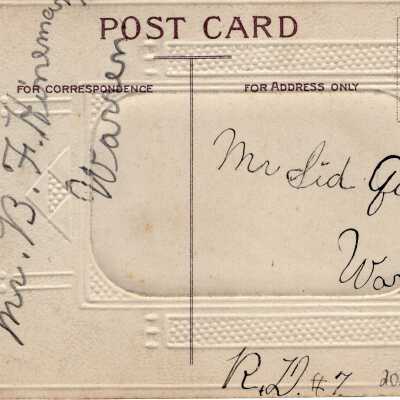 POST CARD
FOR CORRESPONDENCE
FOR ADDRESS ONLY
Mr. B. F. Hineman
Warren
Mr Sid
War
R.D. #7
20